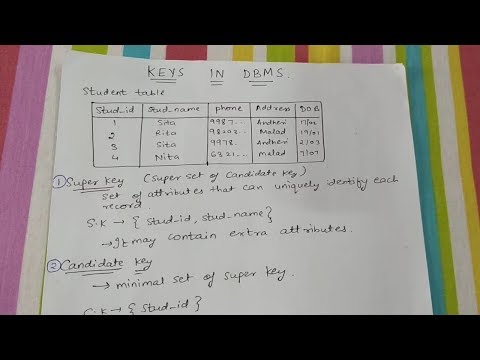 KEYS IN DBMS.
Student table
Stud_id Stud_name phone Address DOB
1 Sita 9987... Andheri 7/02
2 Rita 98203... Malad 19/01
3 Sita 9978.. Andheri 2/03
4 Nita 6321... malad 7/07
① Super key (Super set of Candidate key)
set of attributes that can uniquely identify each
record
S.K → { stud_id, stud_name }
→ It may contain extra attributes.
② Candidate key
→ minimal set of super key.
C.K → { stud_id }